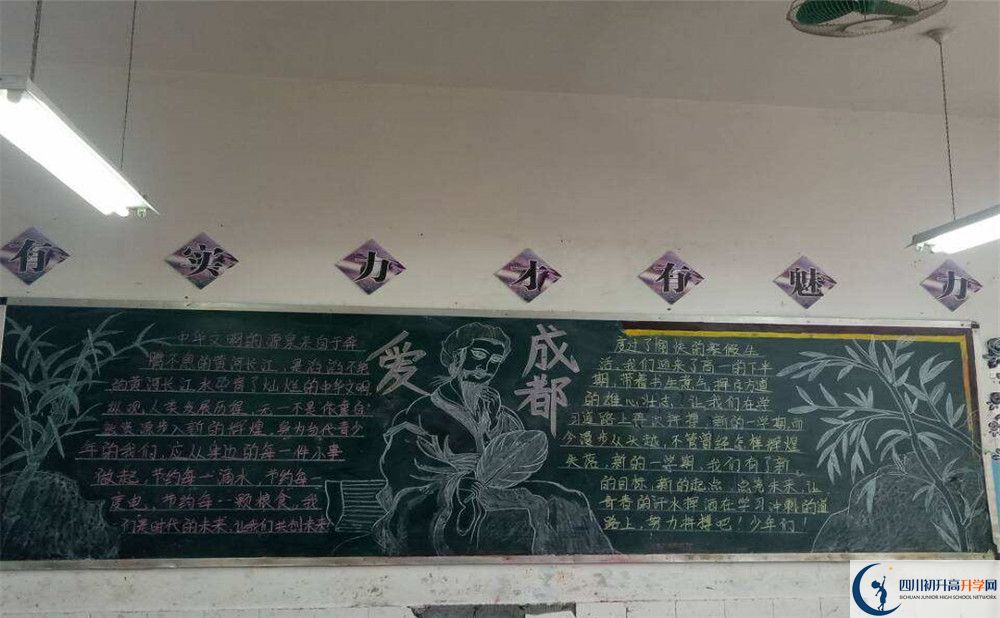 有实力才有魅力
爱成都
中华文明的源泉来自于奔
腾不息的黄河长江，是滔滔不绝
的黄河长江水孕育了灿烂的中华文明
纵观人类发展历程，无一不是依靠自
然资源步入新的辉煌，身为当代青少
年的我们，应从身边的每一件小事
做起，节约每一滴水，节约每一
度电，节约每一颗粮食，我
们是时代的未来，让我们共创未来
度过了愉快的寒假生
活，我们迎来了高一的下半
期，带着书生意气，挥斥方遒
的雄心壮志，让我们在学
习道路上再次拼搏，新的一学期，而
今漫步从头越，不管曾经怎样辉煌
失落，新的一学期，我们有了新
的目标，新的起点，点亮未来，让
青春的汗水挥洒在学习冲刺的道
路上，努力拼搏吧！少年们！
四川初升高升学网
SICHUAN JUNIOR HIGH SCHOOL NETWORK